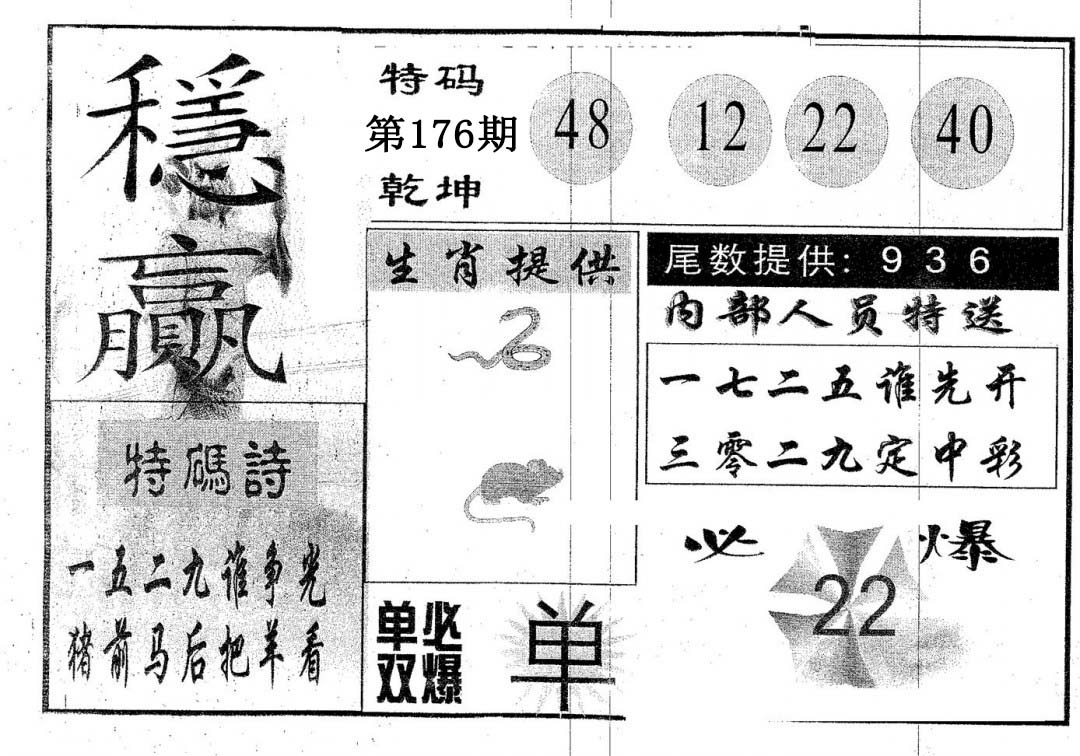 穩赢
特码
第176期
乾坤
48 12 22 40
生肖提供
尾数提供: 9 3 6
内部人员特送
一七二五谁先开
三零二九定中彩
特碼詩
一五二九谁争光
猪前马后把羊看
必爆
22
单双
必爆
单